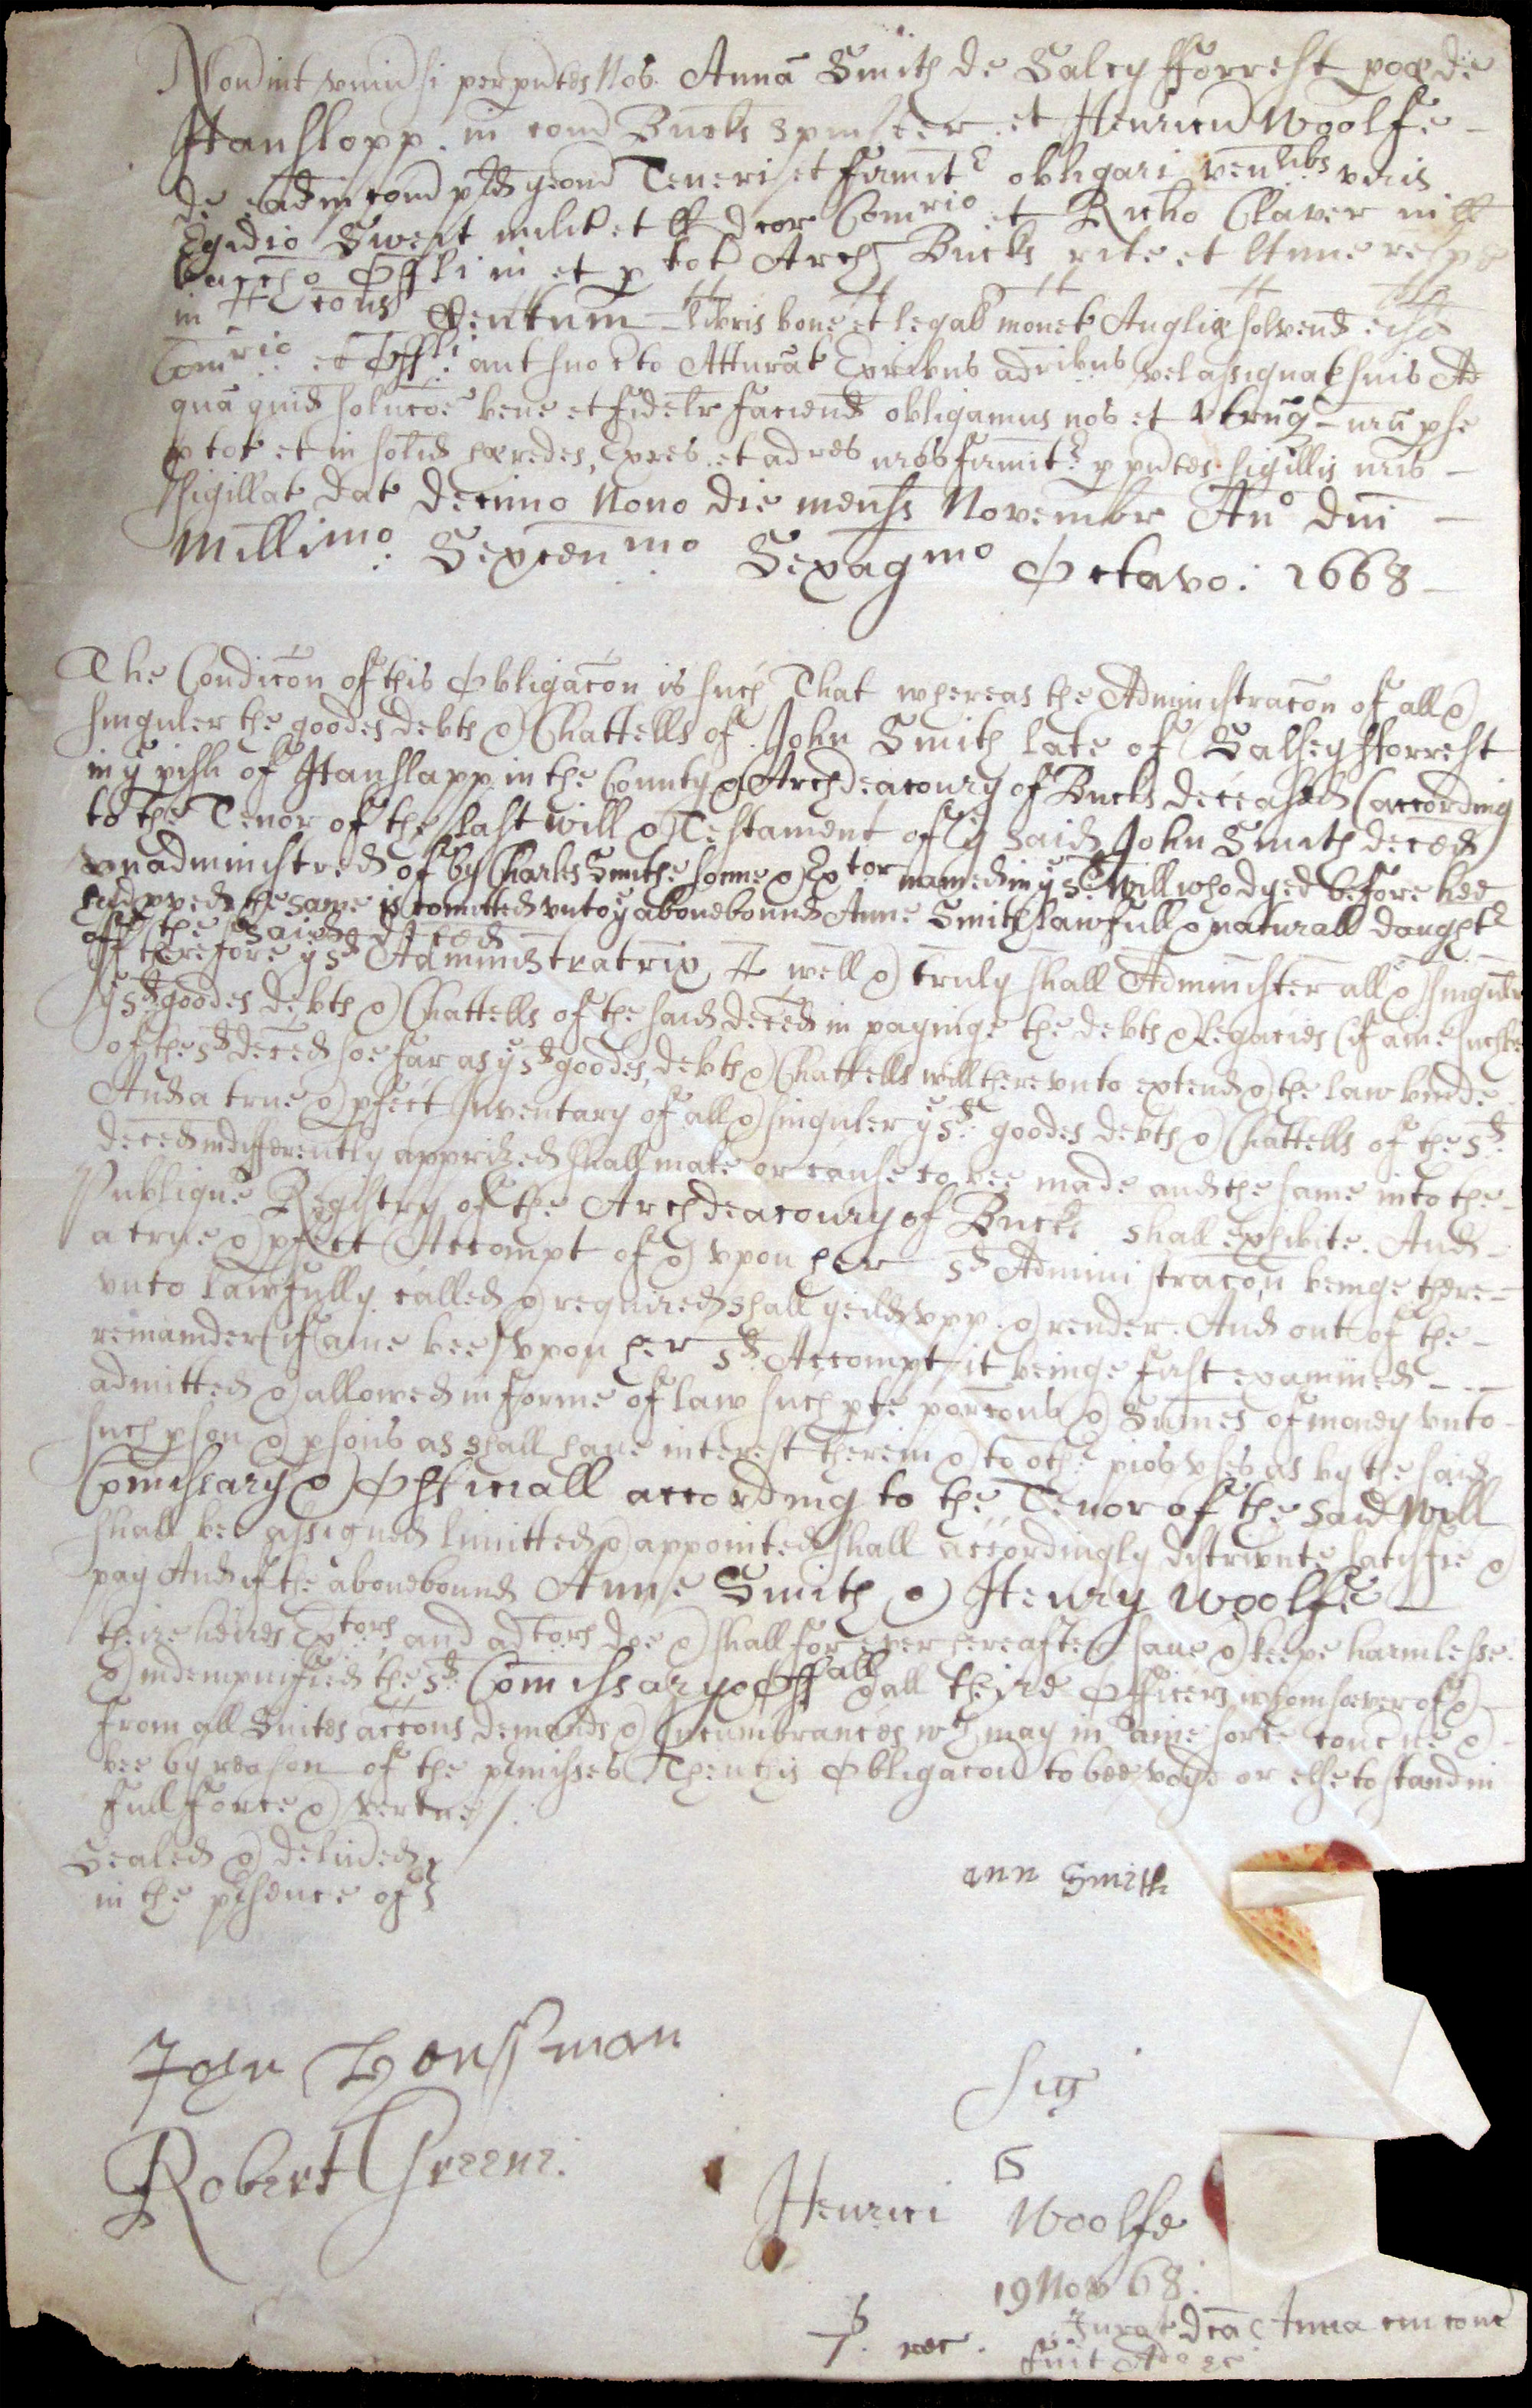 Noverint universi per pntes Nos Annā Smith de Salcy fforrest poæ de
Hanslopp in com Bucks Spinster et Henricū Woolfe
de eadm in com pd yeom Teneri et firmit obligari ven libs viris
Egidio Sweit milit et ll dcor Comrio et Richo Claver in ll
bacc Offli in et p tot Arch Bucks rite et ltime
in Centum libris bone et legal monet Angliæ solvend eisd
Comrio et Offli aut suo cto Atturnat Exribus adribus vel assignat suis Ad
quā quid solucōe bene et fidelr faciend obligamus nos et utrūq nrū p se
p tot et in solid hæredes, Exres et adres nros firmit p pntes sigillis nris
sigillat dat decimo nono die mensis Novembr Ano dni
Millimo Sexcenmo Sexagmo Octavo: 1668
The Condicōn of this Obligacōn is such That whereas the Administracōn of all &
singuler the goodes debts & Chattells of John Smith late of Salsey fforrest
in ye pish of Hanslapp in the County & Archdeaconry of Bucks deceased (according
to the Tenor of the last will & Testament of ye said John Smith deced
unadministred of by Charles Smith sonne & Extor named in ye sd Will who dyed before hee
had pved the same is comitted unto ye abovebound Anne Smith lawfull & naturall daughtr
of the said deced
If therefore ye sd Administratrix well & truly shall Administer all & singuler
ye sd goodes debts & Chattells of the said deced in payinge the debts & Legacies (if anie such be
of the sd deced soe far as ye sd goodes, debts & Chattells will thereunto extend & the law binde
And a true & pfect Inventary of all & singuler ye sd goodes debts & Chattells of the sd
deced indifferently apprized shall make or cause to bee made and the same into the
Publique Registry of the Archdeaconry of Bucks shall exhibite. And
a true & pfect Accompt of & upon her sd Administracōn beinge there-
unto lawfully called & required shall yeild upp & render. And out of the
remainder (if anie bee) upon her sd Accompt it beinge first examined
admitted & allowed in forme of law such pte porcōns & Sumes of money unto
such pson & psons as shall have interest therein & to othr pios uses as by the said
Comissary & Officiall according to the Tenor of the said Will
shall bee assigned limitted & appointed shall accordingly distribute satisfie &
pay And if the abovebound Anne Smith & Henry Woolfe
theire heires Extors and adtors doe & shall for ever hereafter save & keepe harmlesse
& indempnified the sd Comissary & Offall & all theire Officers whomsoever of &
from all Suites accōns demands & Incumbrances wch may in anie sorte concne &
bee by reason of the pmisses Then this Obligacōn to bee voyd or else to stand in
full force & vertue /.
Sealed & delived
in the psence of
ann Smith
John Horssman
Robert Greene.
Sig
S
Henrici Woolfe
19 Nov 68.
Jurat dcā Anna cm
fuit
rec.